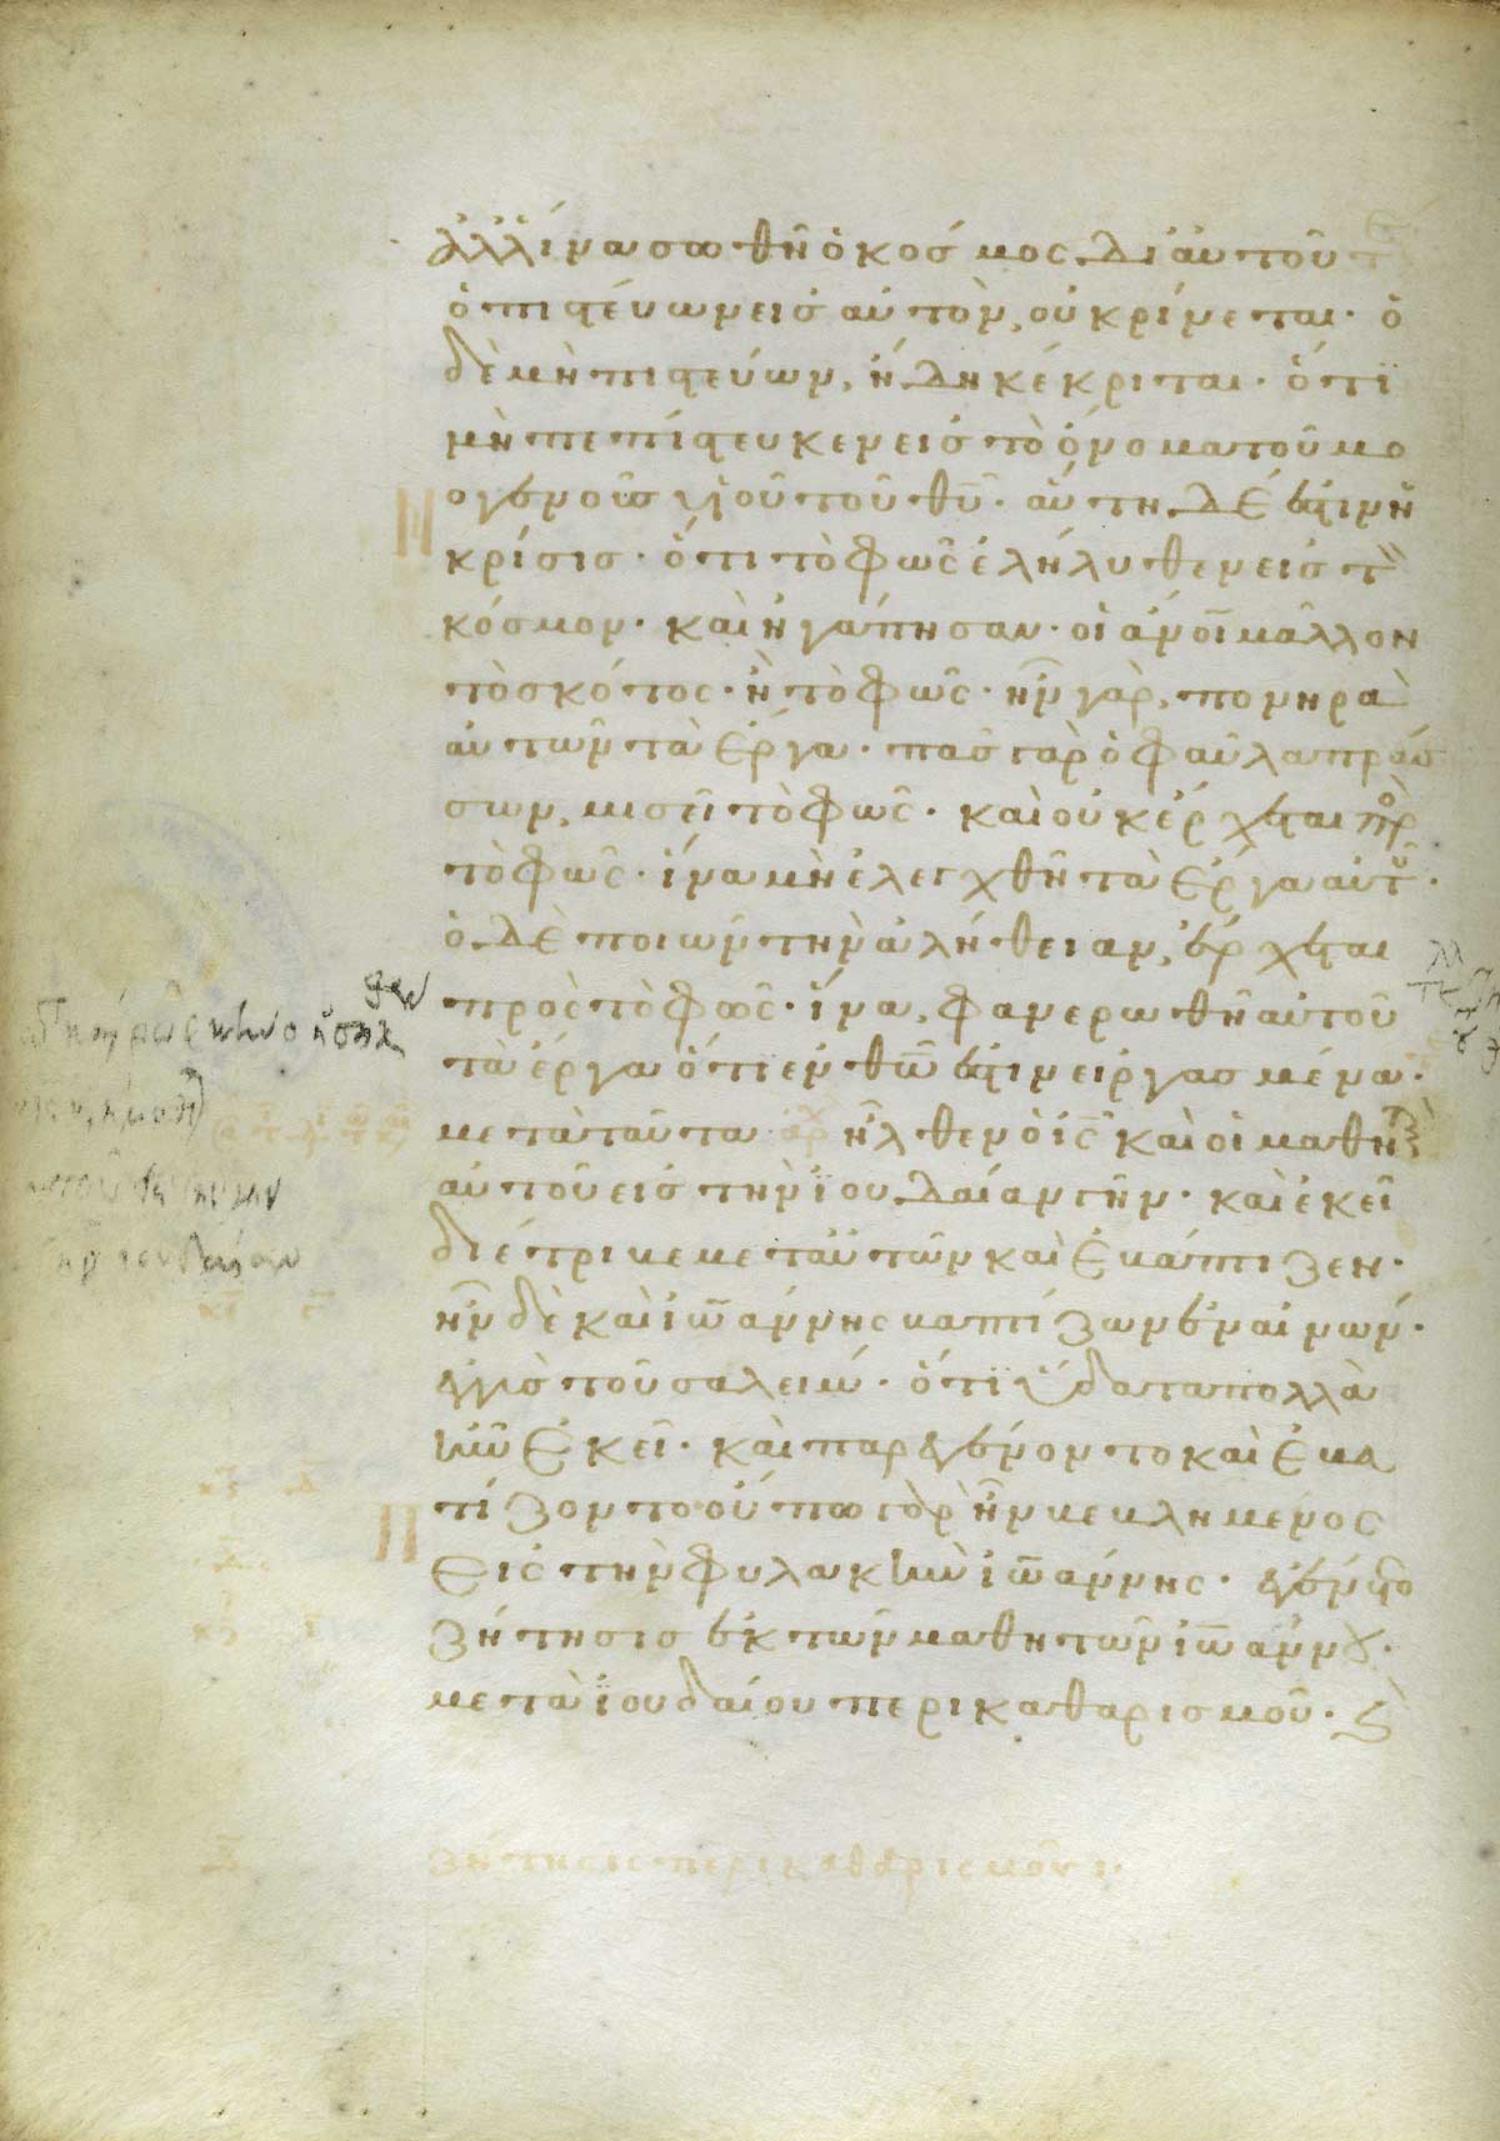 ἀλλ ἵνα σωθῆ ὁ κόσμος δι αὐτοῦ
ὁ πιστεύων εἰς αὐτὸν, οὐ κρίνεται· ὁ
δὲ μὴ πιστεύων, ἤδη κέκριται· ὅτι
μὴ πεπίστευκεν εἰς τὸ ὄνομα τοῦ μο
ογενοῦς υἱοῦ τοῦ θῦ· αὕτη δέ ἐστιν ἡ
κρίσις· ὅτι τὸ φῶς ἐλήλυθεν εἰς τὸν
κόσμον· καὶ ἠγάπησαν· οἱ ἄνοι μᾶλλον
τὸ σκότος· ἢ τὸ φῶς· ἦν γὰρ, πονηρὰ
αὐτῶν τὰ ἔργα· πᾶς γὰρ ὁ φαῦλα πράσ
σων, μισεῖ τὸ φῶς· καὶ οὐκ ἔρχεται πρὸς
τὸ φῶς· ἵνα μὴ ἐλεγχθῆ τὰ ἔργα αὐτοῦ·
ὁ δὲ ποιῶν τὴν ἀλήθειαν, ἔρχεται
πρὸς τὸ φῶς· ἵνα, φανερωθῆ αὐτοῦ
τὰ ἔργα ὅτι ἐν θῶ ἐστιν εἰργασμένα·
μετὰ ταῦτα ἦλθεν ὁ ἰς καὶ οἱ μαθηταὶ
αὐτοῦ εἰς τὴν ϊουδαίαν γῆν· καὶ ἐκεῖ
διέτριβε μετ αὐτῶν καὶ ἐβάπτιζεν·
ἦν δὲ καὶ ἰωάννης βαπτίζων ἐν αἰνών·
ἐγγὺς τοῦ σαλείμ· ὅτι ὕδατα πολλὰ
ἦν ἐκεῖ· καὶ παρεγένοντο καὶ ἐβα
τίζοντο οὔπω γὰρ ἦν βεβλημένος
εἰς τὴν φυλακὴν ἰωάννης· ἐγένετο
ζήτησις ἐκ τῶν μαθητῶν ἰωάννου·
μετὰ ϊουδαίου περὶ καθαρισμοῦ·
ζήτησις περὶ καθαρισμοῦ